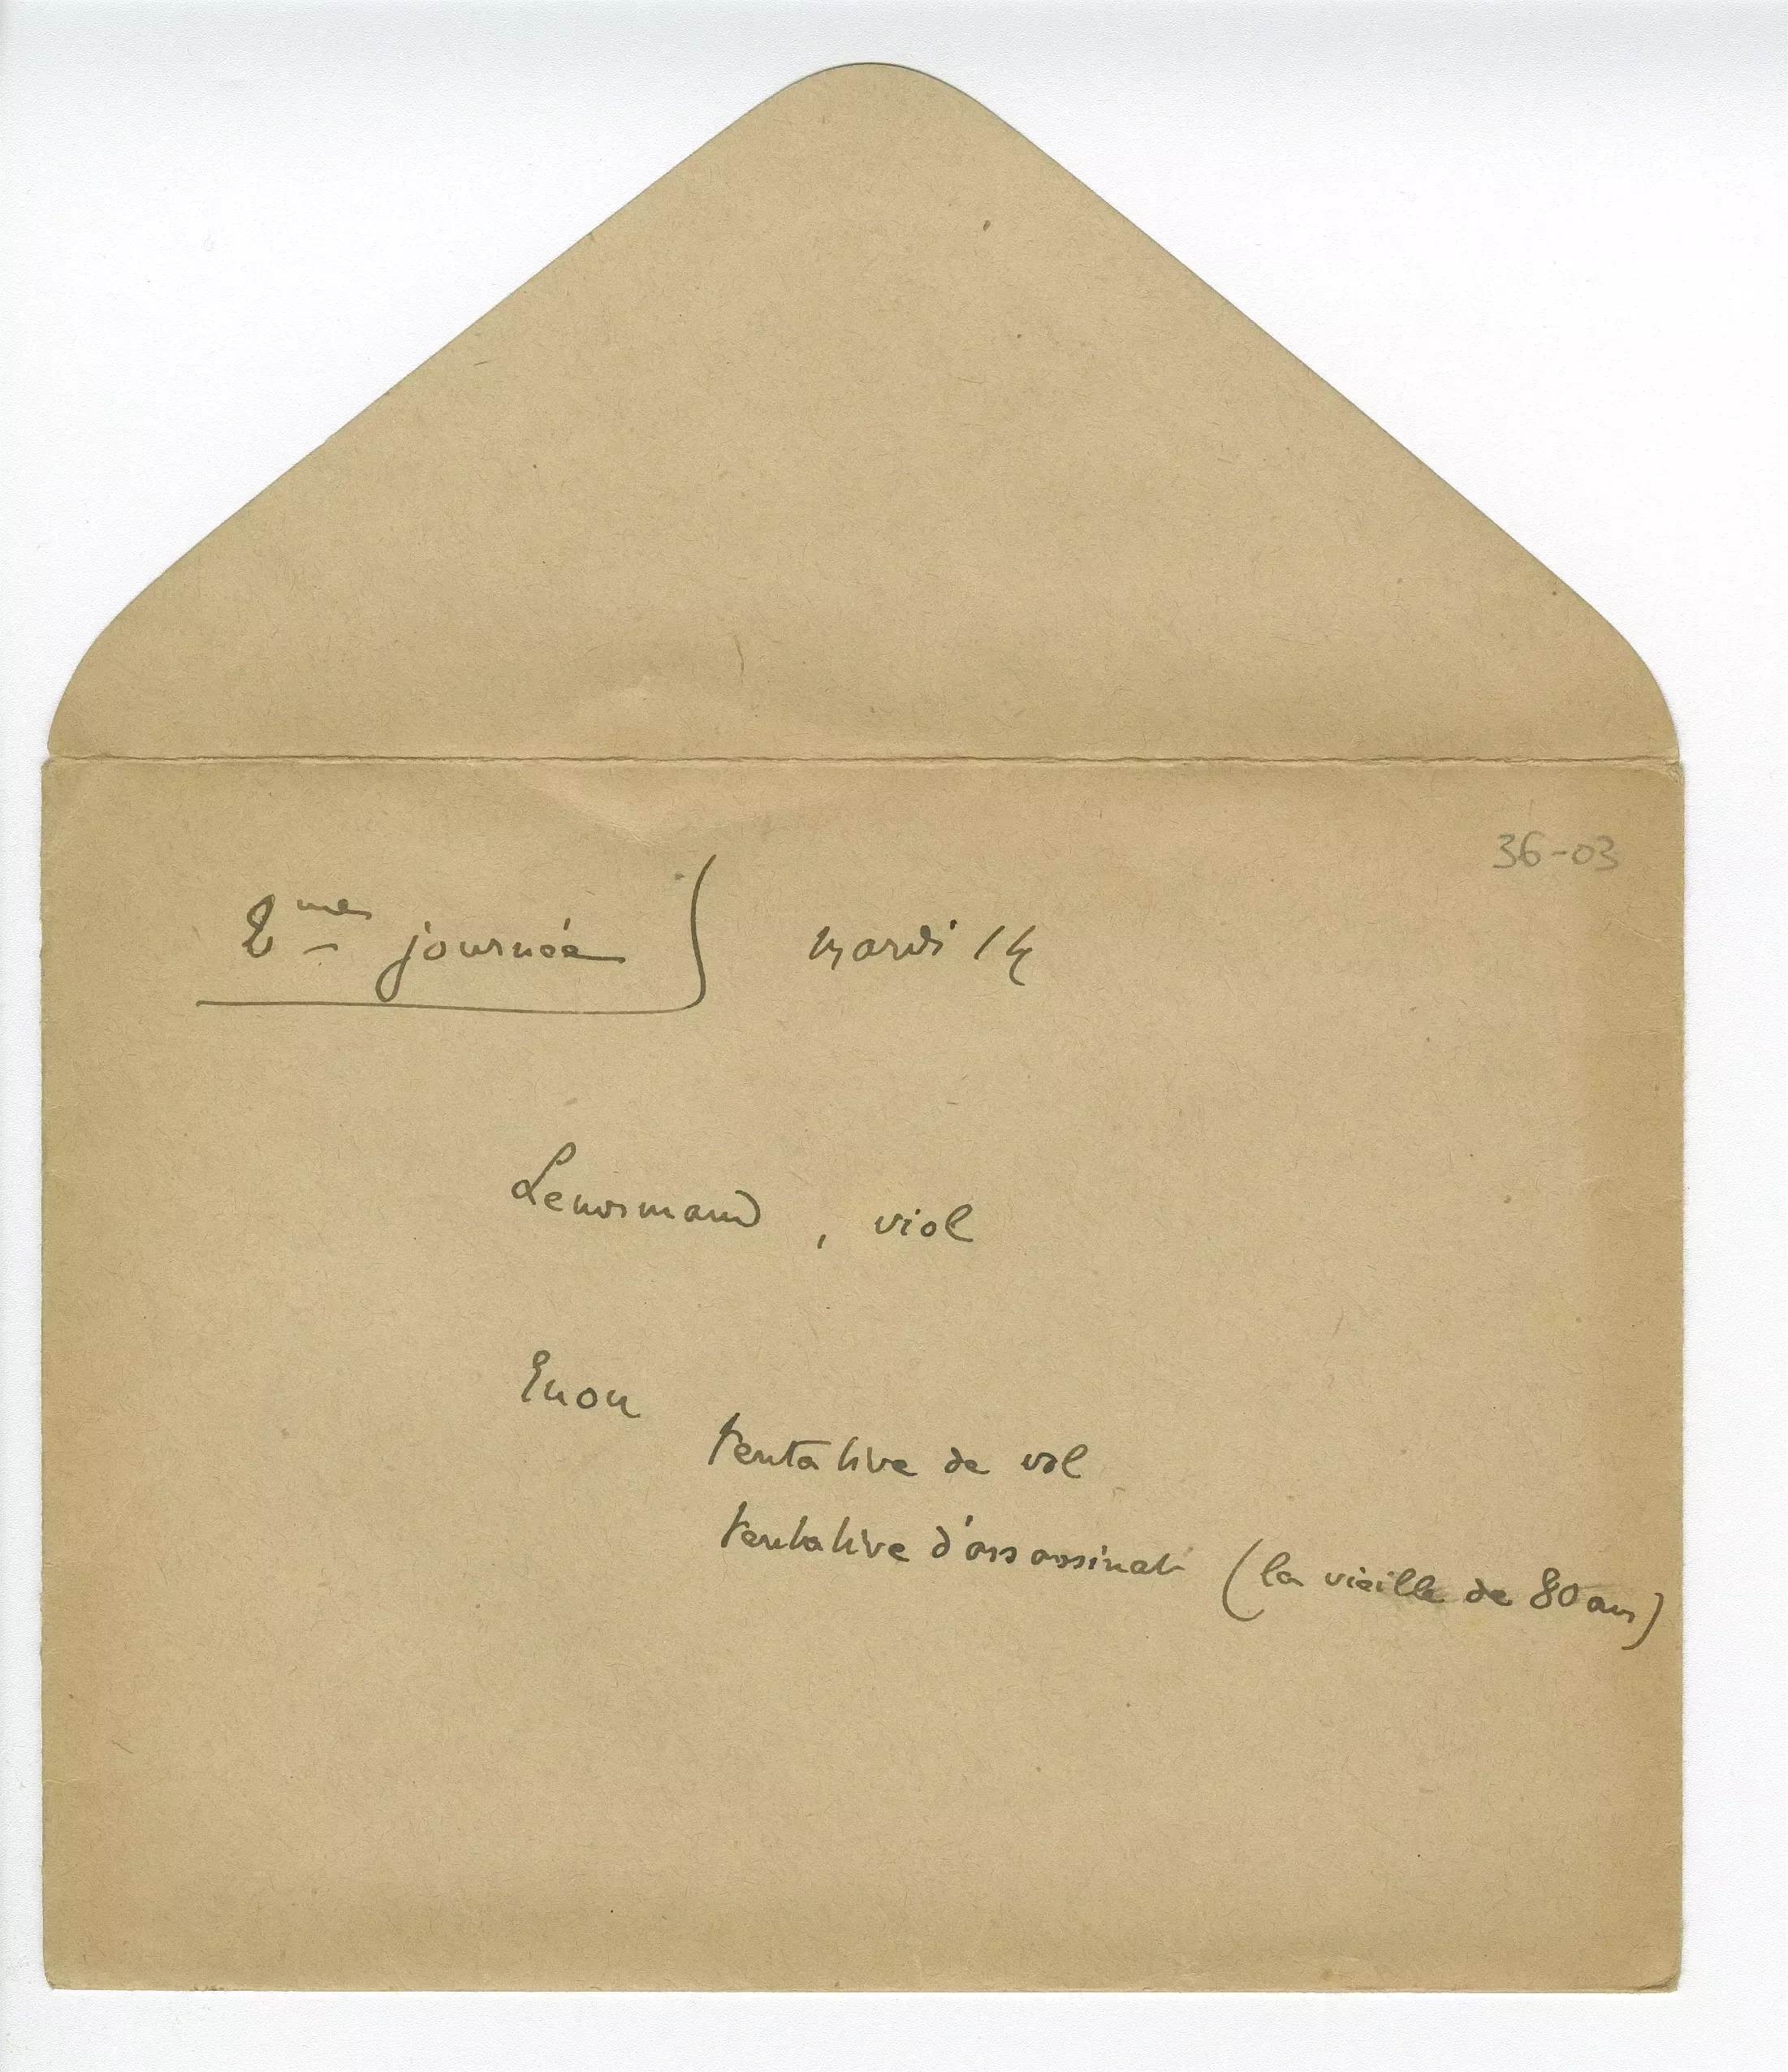 36-03
2me journée mardi 14
Lenormand, viol
Enon
tentative de vol
tentative d'assassinat (la vieille de 80 ans)